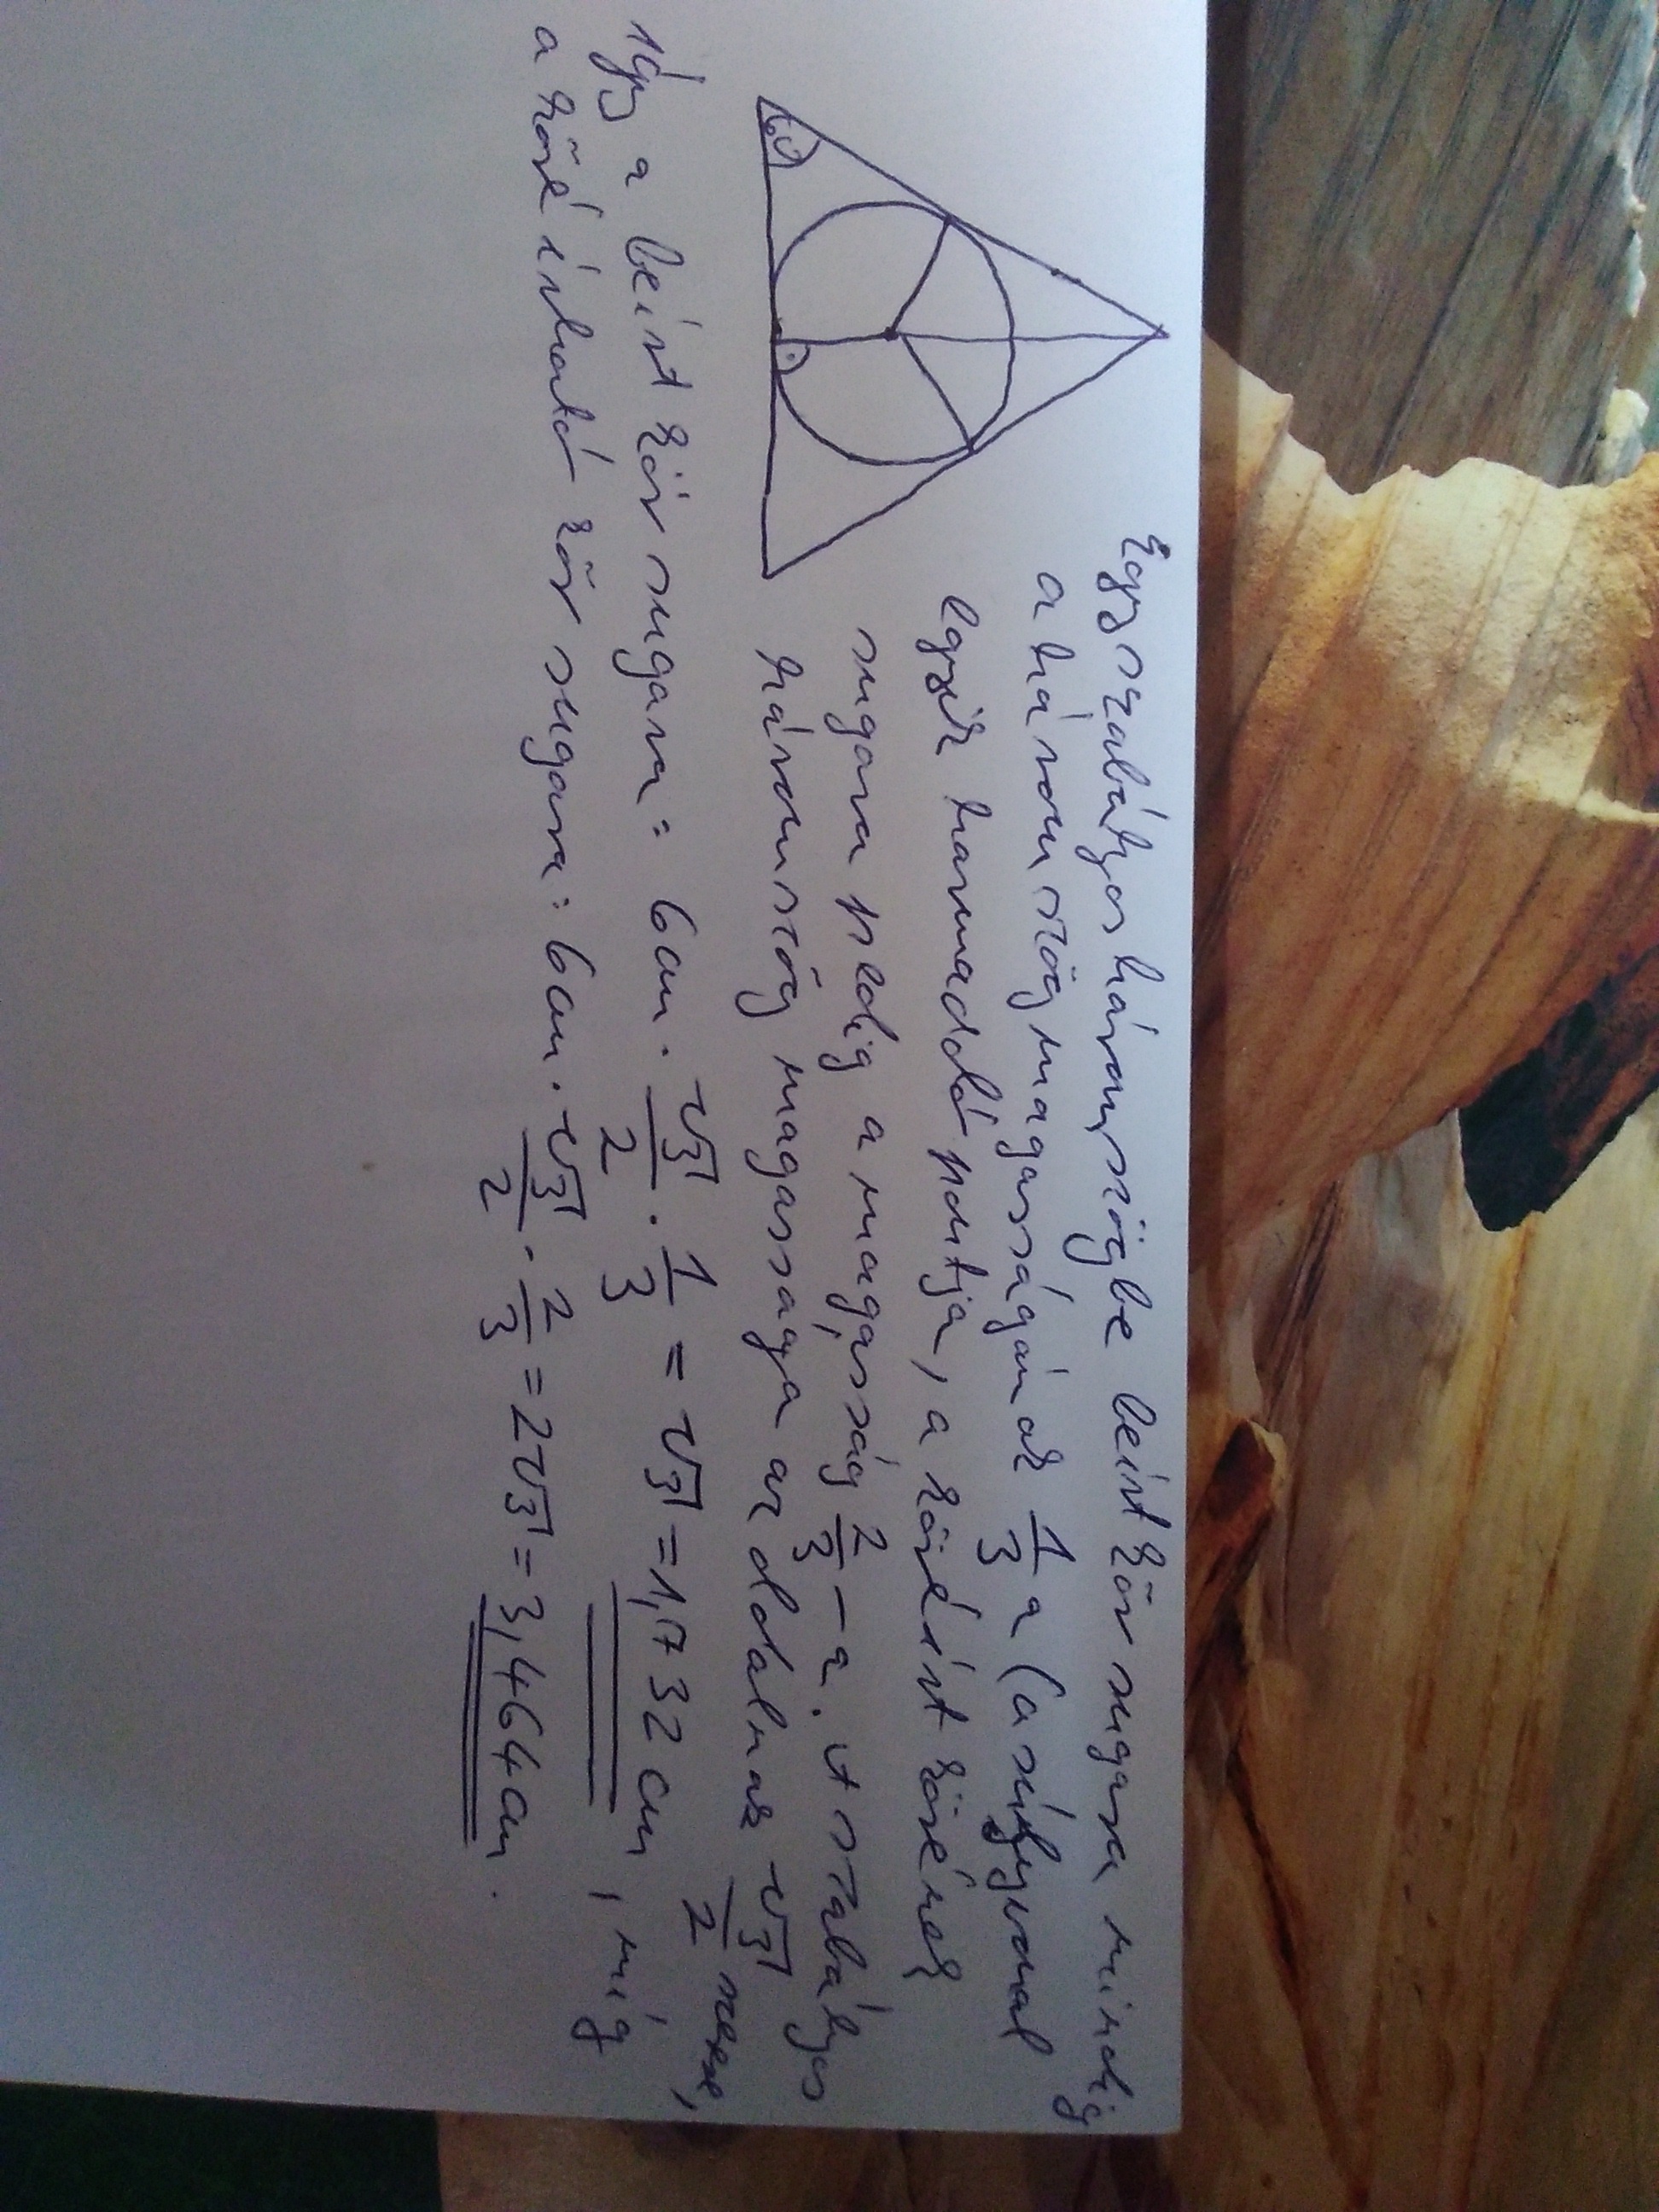 Egy szabályos háromszögbe beírt kör sugara mindig
a háromszög magasságának 1/3 a (a súlyvonal
egyik harmadoló pontja, a köréírt körének
sugara pedig a magasság 2/3 -a. A szabályos
háromszög magassága az oldalnak √3/2 szerese,
60°
Így a beírt kör sugara: 6cm · √3/2 · 1/3 = √3 = 1,732 cm, míg
a köré írható kör sugara: 6cm · √3/2 · 2/3 = 2√3 = 3,464cm.